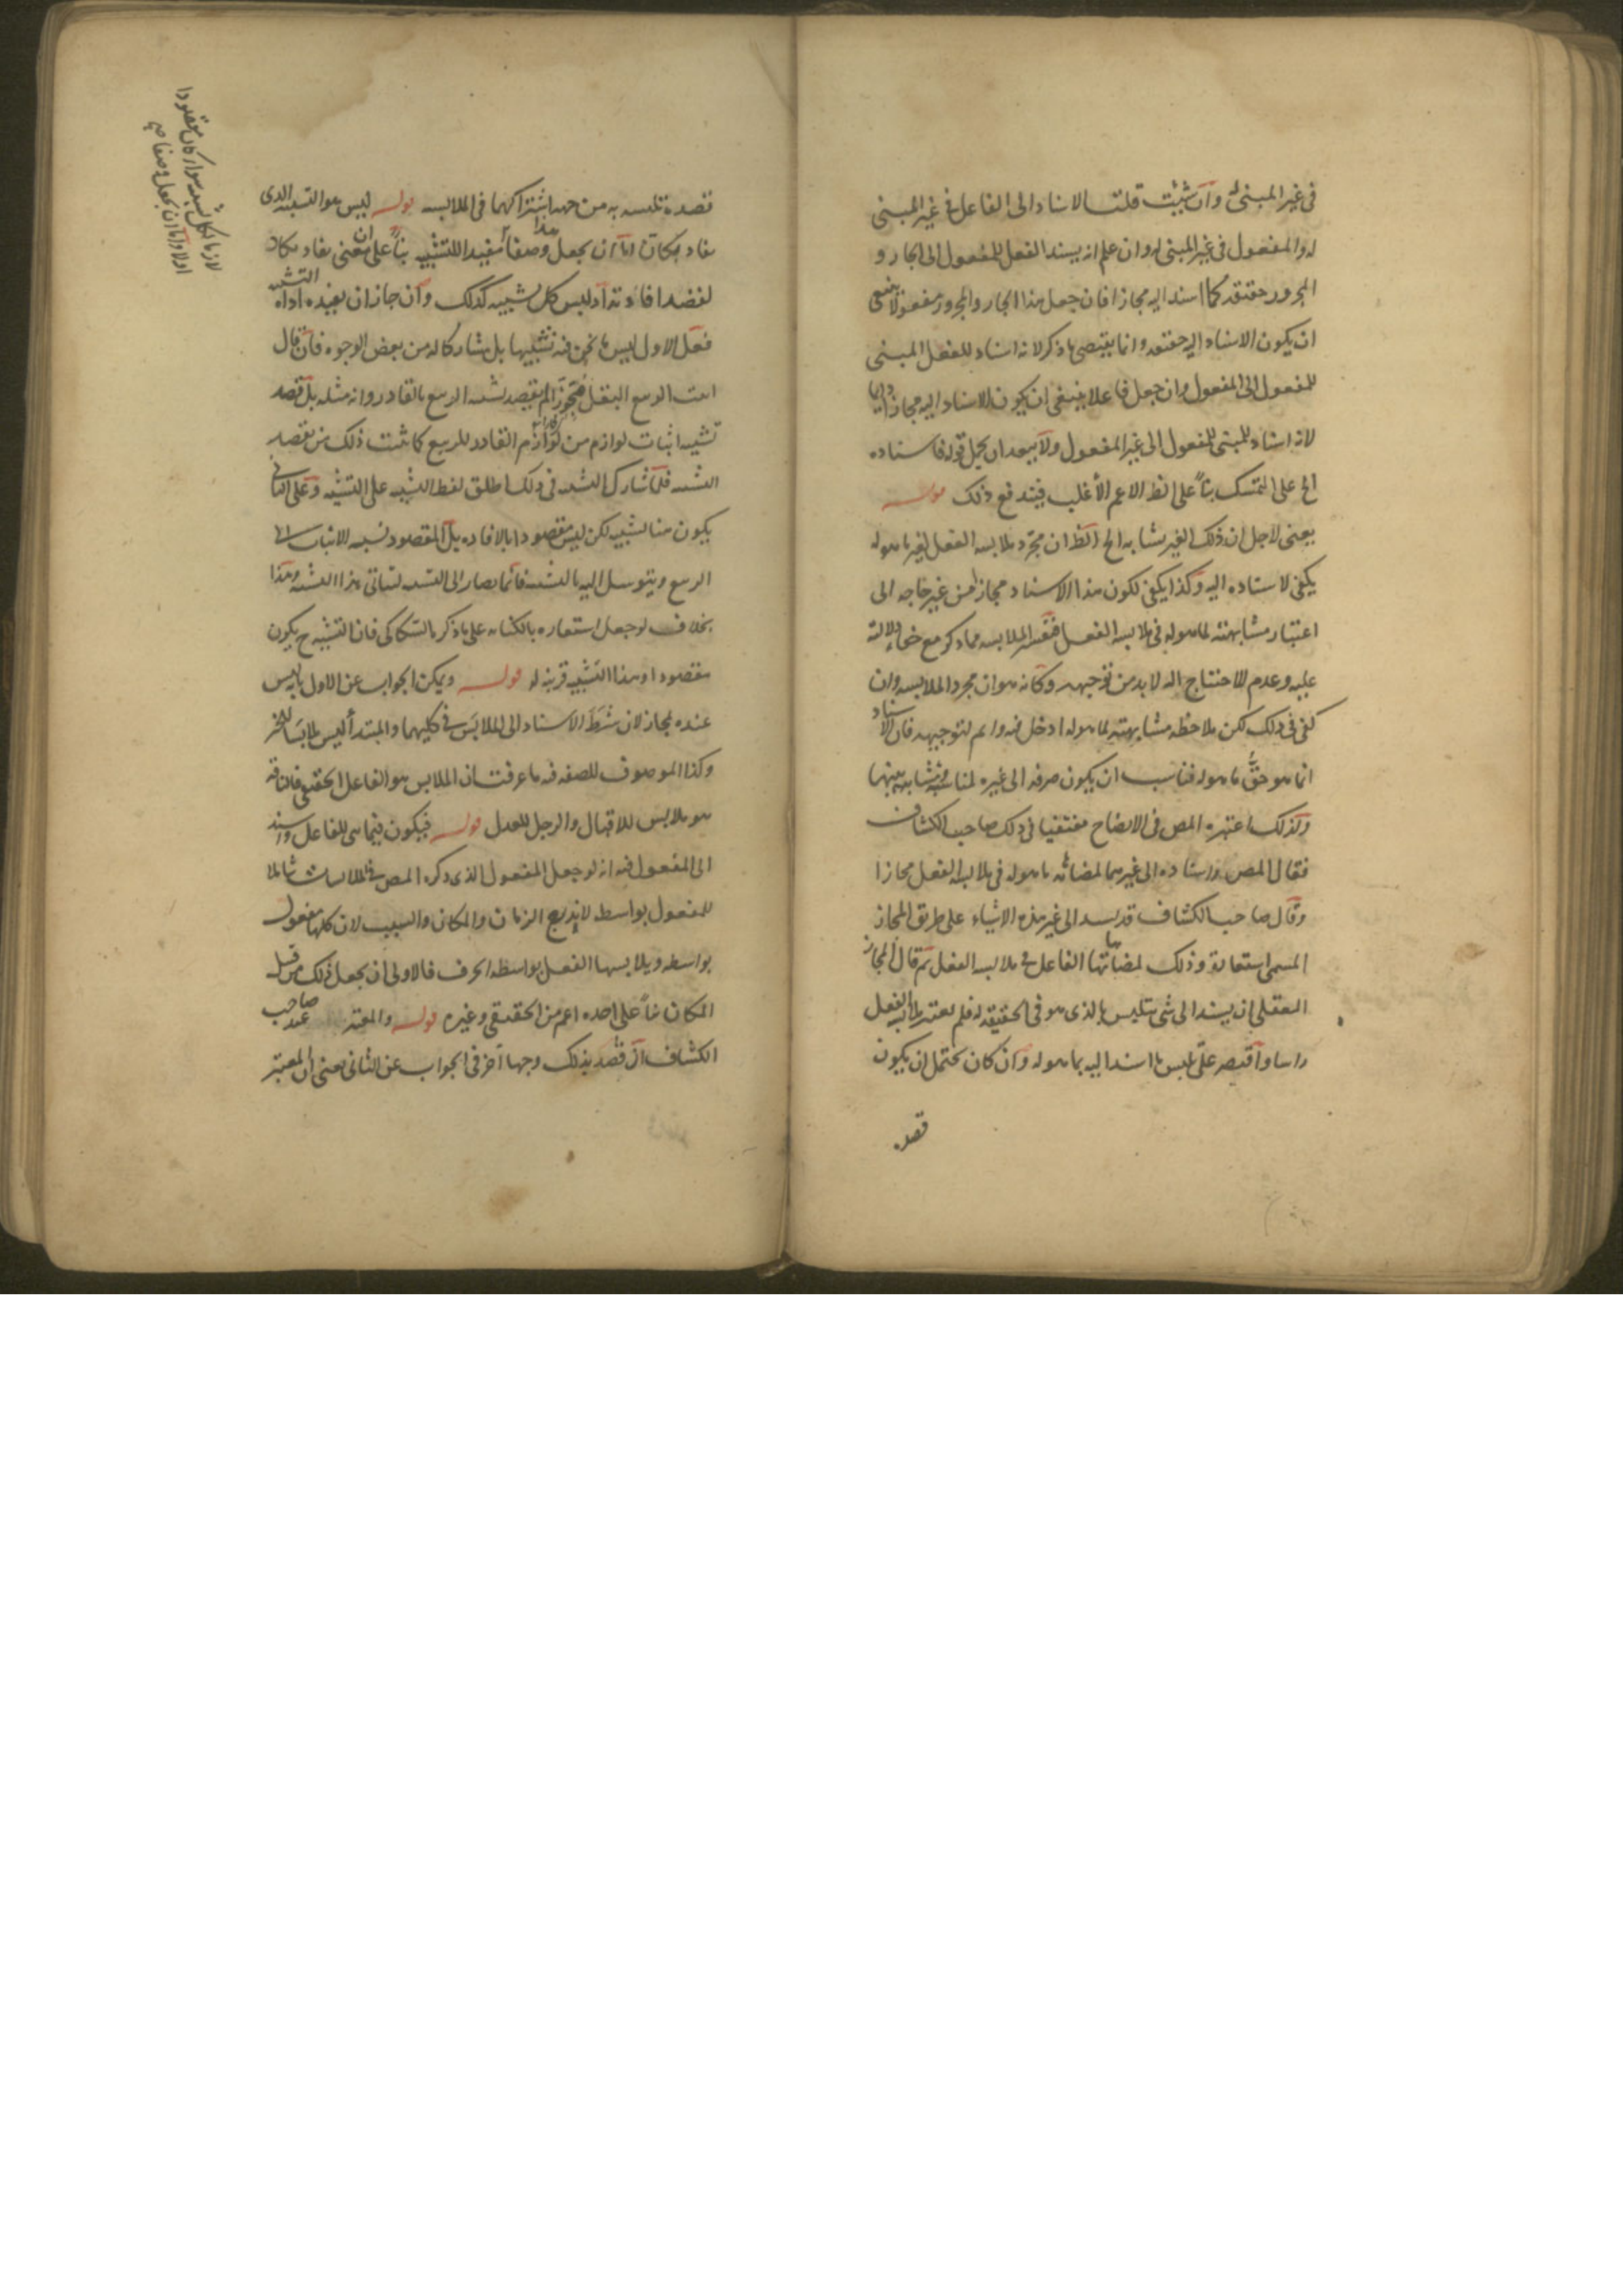 في غير المبني له وان شئت قلت الاسناد الى الفاعل في غير المبني
له والمفعول في غير المبني له وان علم انه يسند الفعل للمفعول الى الجار و
المجرور حقيقة كما اسند اليه مجازا فان جعل هذا الجار والمجرور مفعولا ينبغي
ان يكون الاسناد اليه حقيقه وانما يقتضي ما ذكر لانه اسناد للفعل المبني
للمفعول الى المفعول وان جعل فاعلا ينبغي ان يكون الاسناد اليه مجازا دايما
لانه اسناد للمبني للمفعول الى غير المفعول ولا يبعد ان يحمل قوله فاسناده
الخ على التمسك بناً على انظ الاعم الأغلب فيندفع ذلك قوله
يعني لاجل ان ذلك الغير يشابه الخ الظ ان مجرد ملابسه الفعل لغير ما هوله
يكفي لاسناده اليه وكذا يكفي لكون هذا الاسناد مجازا من غير حاجه الى
اعتبار مشابهته لما هوله في ملابسه الفعل الملابسه مما ذكر مع خفاء دلالته
عليه وعدم الاحتياج اليه لا بد من توجيهه وكانه هو ان مجرد الملابسه وان
كفى في ذلك لكن ملاحظه مشابهته لما هوله ادخل فيه واتم لتوجيهه فان الاسناد
انما هو حق ما هوله فناسب ان يكون صرفه الى غيره لمناسبة ومشابهه بينهما
وكذلك اعتبره المص في الايضاح مقتفيا في ذلك صاحب الكشاف
فقال المص واسناده الى غيرهما لمضاهاته ما هوله في ملابسه الفعل مجازا
وقال صاحب الكشاف قد يسند الى غير هذه الاشياء على طريق المجاز
المسمى استعارة وذلك لمضاهاتها الفاعل في ملابسه الفعل ثم قال المجاز
العقلي ان يسند الى شي يتلبس بالذي هو في الحقيقه له فلم يعتبر ملابسه الفعل
راسا واقتصر على تلبس ما اسند اليه بما هوله وان كان يحتمل ان يكون
قصد
قصده تلبسه به من جهه اشتراكهما في الملابسه قوله ليس هو التشبيه الذي
يفاد بكان اما ان يجعل هذا وصفا مفيدا للتشبيه بناً على ان معنى يفاد بكان
لقصد افادته اذ ليس كل تشبيه كذلك وان جاز ان يفيده اداة التشبيه
فعلى الاول ليس ما نحن فيه تشبيها بل مشاركا له من بعض الوجوه فان قال
انبت الربيع البقل متجوزا لم يقصد تشبيه الربيع بالقادر وانه مثله بل قصد
تشبيه اثبات لوازم من لوازم القادر للربيع كما ثبت ذلك من يقصد
التشبيه فلما شارك التشبيه في ذلك اطلق لفظ التشبيه على التشبيه وعلى الثاني
يكون هنا تشبيه لكن ليس مقصودا بالافاده بل المقصود نسبه الانبات الى
الربيع ويتوسل اليه بالتشبيه فانما يصار الى التشبيه ليتاتى هذا التشبيه وهذا
بخلاف لو جعل استعاره بالكنايه على ما ذكره السكاكي فان التشبيه ح يكون
مقصودا وهذا التشبيه قرينه له قوله ويمكن الجواب عن الاول بانه ليس
عنده لمجاز لان شرط الاسناد الى الملابس في كليهما والمبتدأ ليس ملابسا للخبر
وكذا الموصوف للصفه فيه ما عرفت ان الملابس هو الفاعل الحقيقي فالناقه
هو ملابس للاقبال والرجل للعدل قوله فيكون فيما بني للفاعل واسند
الى المفعول فيه انه لو جعل المفعول الذي ذكره المص في الملابسات شاملا
للمفعول بواسطه لاندرج الزمان والمكان والسبب لان كلها مفعول
بواسطه ويلابسها الفعل بواسطه الحرف فالاولى ان يجعل ذلك من قبيل
المكان بناً على اخذه اعم من الحقيقي وغيره قوله والمعتبر عند صاحب
الكشاف ان قصد بذلك وجها آخر في الجواب عن الثاني يعني ان المعتبر
لازما لكل تشبيه سواء كان مقصودا
اولا واما ان يجعل وصفا صح